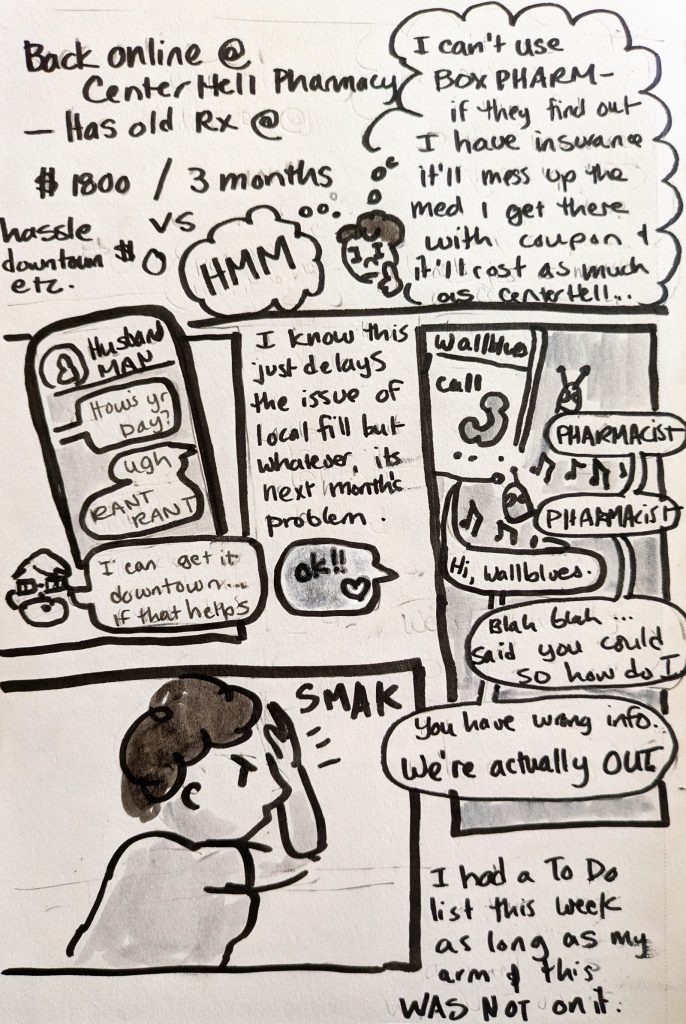 Back online @
Center Hell Pharmacy
- Has old Rx @
$1800 / 3 months
vs
hassle
downtown $0
etc.
HMM
I can't use
BOX PHARM -
if they find out
I have insurance
it'll mess up the
med I get there
with coupon &
it'll cost as much
as centerHell...
Husband
MAN
How's yr
Day?
ugh
RANT
RANT
I can get it
downtown...
if that helps
I know this
just delays
the issue of
local fill but
whatever, its
next months
problem.
ok!!
Wallblues
call
PHARMACIST
PHARMACIST
Hi, Wallblues.
Blah blah ...
said you could
so how do I
You have wrong info.
We're actually OUT
SMAK
I had a To Do
list this week
as long as my
arm & this
WAS NOT on it.